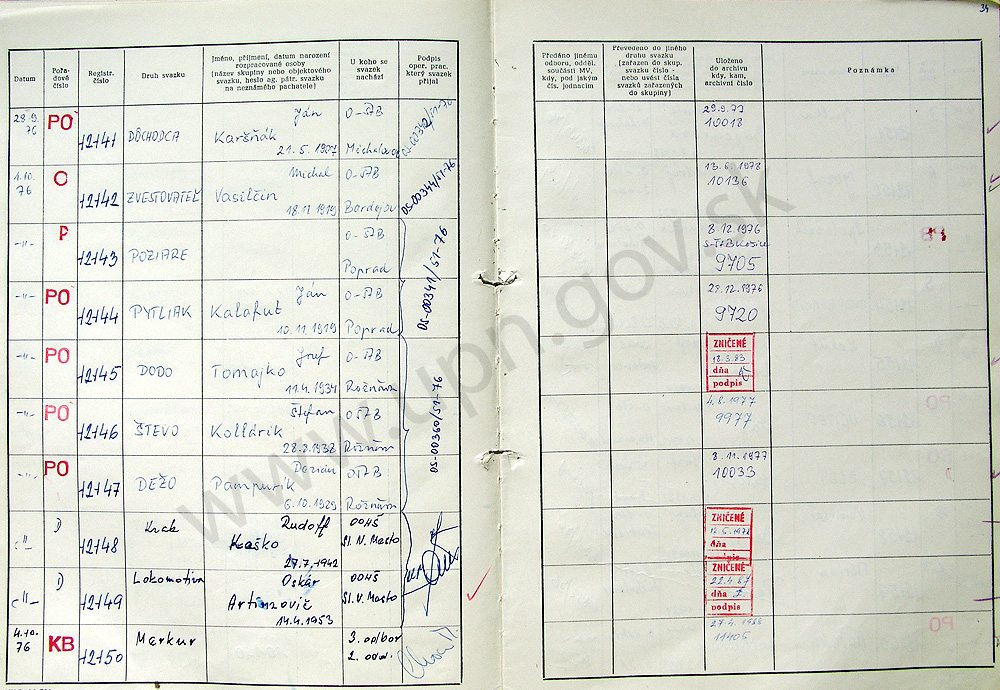 34
Datum
Pořa-
dové
číslo
Registr.
číslo
Druh svazku
Jméno, příjmení, datum narození
rozpracované osoby
(název skupiny nebo objektového
svazku, heslo ag. pátr. svazku
na neznámého pachatele)
U koho se
svazek
nachází
Podpis
oper. prac.
který svazek
přijal
Předáno jinému
odboru, odděl.
součásti MV,
kdy, pod jakým
čís. jednacím
Převedeno do jiného
druhu svazku
(zařazen do skup.
svazku číslo -
nebo uvést čísla
svazků zařazených
do skupiny)
Uloženo
do archivu
kdy, kam,
archivní číslo
Poznámka
28.9.
76
PO
12141
DÔCHODCA
Ján
Karšňák
21.5.1907
O-ŠTB
Michalovce
OS-00342/51-76
29.9.77
10018
1.10.
76
O
12142
ZVESTOVATEĽ
Michal
Vasilčin
18.11.1919
O-ŠTB
Bardejov
OS-00344/51-76
13.6.1978
10136
-"-
P
12143
POŽIARE
O-ŠTB
Poprad
OS-00341/51-76
8.12.1976
S-ŠTB Košice
9705
-"-
PO
12144
PYTLIAK
Ján
Kalafut
10.11.1919
O-ŠTB
Poprad
29.12.1976
9720
-"-
PO
12145
DODO
Jozef
Tomajko
11.4.1934
O-ŠTB
Rožňava
OS-00360/51-76
ZNIČENÉ
18.3.83
dňa
podpis
-"-
PO
12146
ŠTEVO
Štefan
Kollárik
28.8.1932
OŠTB
Rožňava
4.8.1977
9977
-"-
PO
12147
DEŽO
Pampurik
6.10.1929
OŠTB
Rožňava
8.11.1977
10033
-"-
D
12148
Krak
Rudolf
Kaško
27.7.1942
OOHŠ
Sl. N. Mesto
ZNIČENÉ
dňa
podpis
-"-
D
12149
Lokomotíva
Oskár
Artinzovič
14.4.1953
OOHŠ
Sl. N. Mesto
ZNIČENÉ
22.4.87
dňa
podpis
4.10.
76
KB
12150
Markur
3. odbor
2. odd.
27.4.1988
11405
www.upn.gov.sk